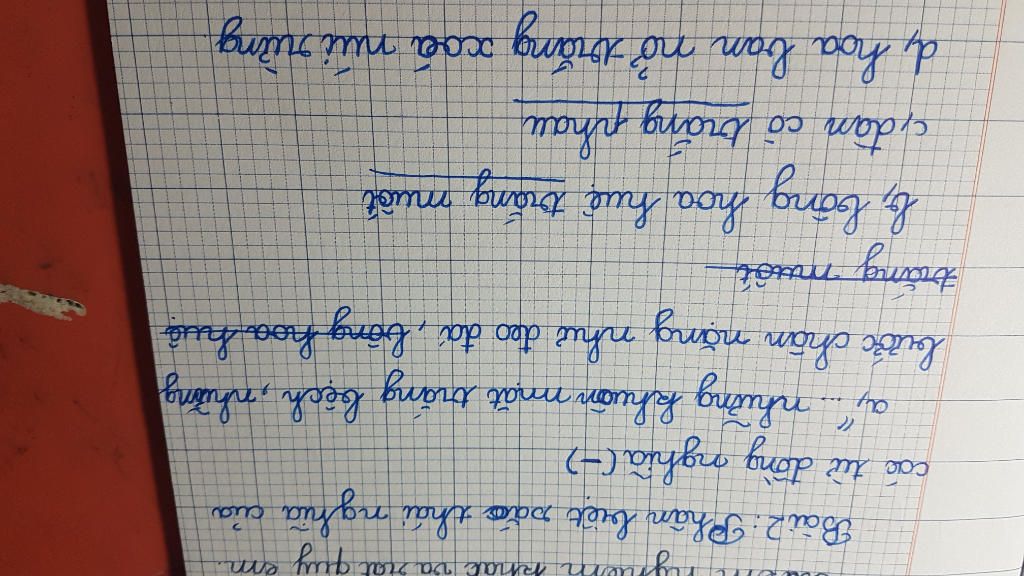 nghiêm khắc và rất quý em.
Bài 2: Phân biệt sắc thái nghĩa của
các từ đồng nghĩa (-)
a, "... những khuôn mặt trắng bệch, những
bước chân nặng như đeo đá, bông hoa huệ
trắng muốt
b, bông hoa huệ trắng muốt
c, đàn cò trắng phau
d, hoa ban nở trắng xoá núi rừng